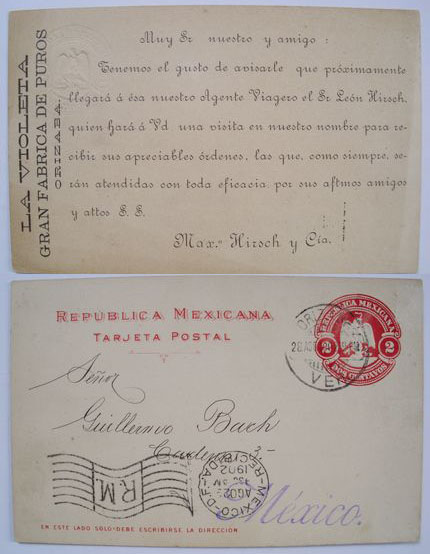 LA VIOLETA
GRAN FABRICA DE PUROS
ORIZABA.
Muy Sr nuestro y amigo :
Tenemos el gusto de avisarle que próximamente
llegará á ésa nuestro Agente Viagero el Sr León Hirsch,
quien hará á Vd una visita en nuestro nombre para re-
cibir sus apreciables órdenes, las que, como siempre, se-
rán atendidas con toda eficacia por sus aftmos amigos
y attos S. S.
Max.º Hirsch y Cía.
REPUBLICA MEXICANA
TARJETA POSTAL
REPUBLICA MEXICANA
2 2
DOS CENTAVOS
VER
Señor
Guillermo Bach
Cadena
R.M.
MEXICO-D.F.
RECIBIDA
1902
México.
EN ESTE LADO SOLO DEBE ESCRIBIRSE LA DIRECCION